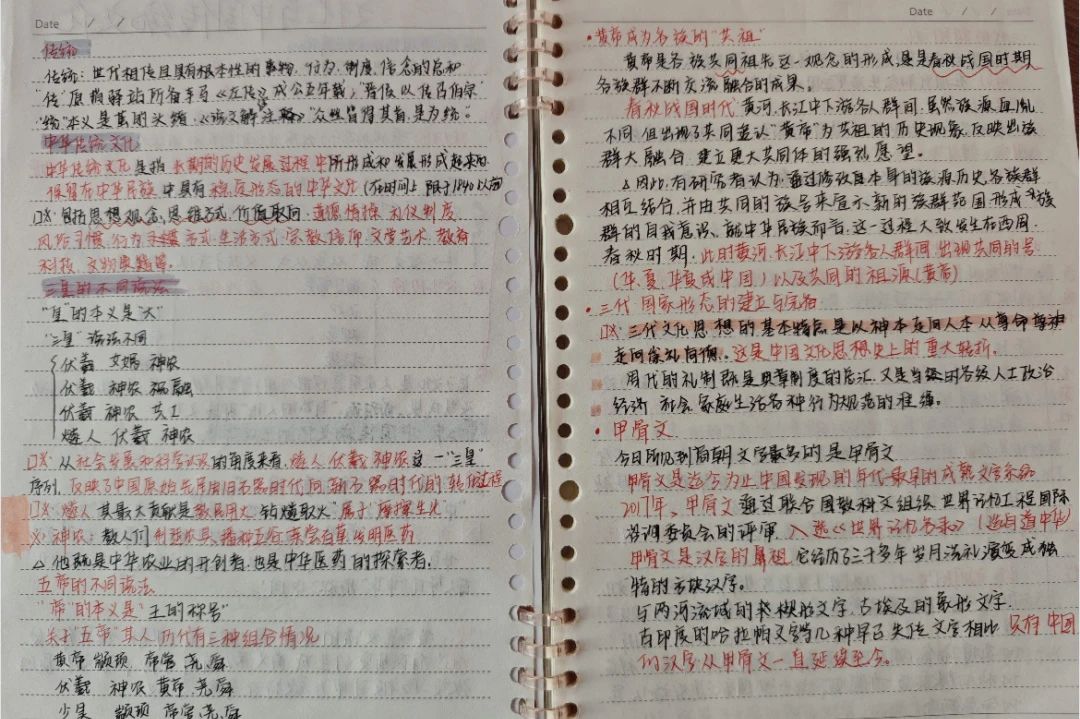 Date / /
传统
传统：世代相传且具有根本性的事物，行为，制度，信念的总和
"传"原指驿站所备车马《左传》成公五年载；晋侯以传召伯宗
"统"本义是茧的头绪，《说文解字注释》众丝皆得其首，是为统。
中华传统文化
中华传统文化是指 长期的历史发展过程中所形成和发展形成起来的，
保留在中华民族中具有稳定形态的中华文化（在时间上限于1840以前
包括思想观念，思维方式，价值取向，道德情操，礼仪制度
风俗习惯，行为方式，生活方式，宗教信仰，文学艺术，教育
科技，文物典籍等。
三皇的不同说法
"皇"的本义是"大"
"三皇"说法不同
伏羲 女娲 神农
伏羲 神农 祝融
伏羲 神农 共工
燧人 伏羲 神农
从社会发展和科学认识的角度来看，燧人 伏羲 神农这一"三皇"
序列，反映了中国原始先民由旧石器时代向新石器时代的转化过程
燧人 其最大贡献是教民用火"钻燧取火"属于"摩擦生火"
神农：教人们制造农具，播种五谷，亲尝百草，发明医药
△ 他既是中华农业的开创者，也是中华医药的探索者。
五帝的不同说法
"帝"的本义是"王的称号"
关于"五帝"其人历代有三种组合情况
黄帝 颛顼 帝喾、尧、舜
伏羲 神农 黄帝、尧、舜
少昊 颛顼 帝喾、尧、舜
Date / /
·黄帝成为各族的"共祖"
黄帝是各族共同祖先这一观念的形成，是春秋战国时期
各族群不断交流融合的成果。
春秋战国时代 黄河，长江中下游各人群间，虽然族源血胤
不同，但出现了共同追认"黄帝"为共祖的历史现象，反映出族
群大融合，建立更大共同体的强烈愿望。
△ 因此，有研究者认为：通过修改自本身的族源历史，各族群
相互结合，并由共同的族号来宣示新的族群范围形成
群的自我意识。就中华民族而言，这一过程大致发生在西周
春秋时期，此时黄河，长江中下游各人群间，出现共同的号
（华、夏、华夏或中国）以及共同的祖源（黄帝）
·三代国家形态的建立与完备
三代文化思想的基本特点是以神本走向人本，从尊命尊神
走向崇礼尚德。这是中国文化思想史上的重大转折。
周代的礼制既是典章制度的总汇，又是当时的各级人士政治
经济 社会 家庭生活各种行为规范的准绳。
·甲骨文
今日所见到商朝文字最多的是甲骨文
甲骨文是迄今为止中国发现的年代最早的成熟文字系统
2017年，甲骨文通过联合国教科文组织世界记忆工程国际
咨询委员会的评审，入选《世界记忆名录》
甲骨文是汉字的鼻祖，它经历了三千多年岁月洗礼演变成独
特的方块汉字。
与两河流域的楔形文字，古埃及的象形文字，
古印度的哈拉帕文字等几种早已失传文字相比，只有中国
的汉字从甲骨文一直延续至今。